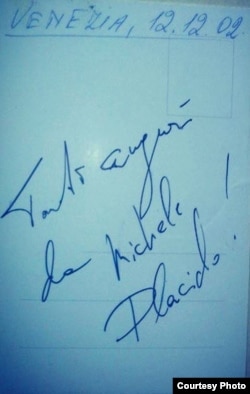 VENEZIA, 12.12.02
Tanti auguri
da Michele
Placido!
Courtesy Photo